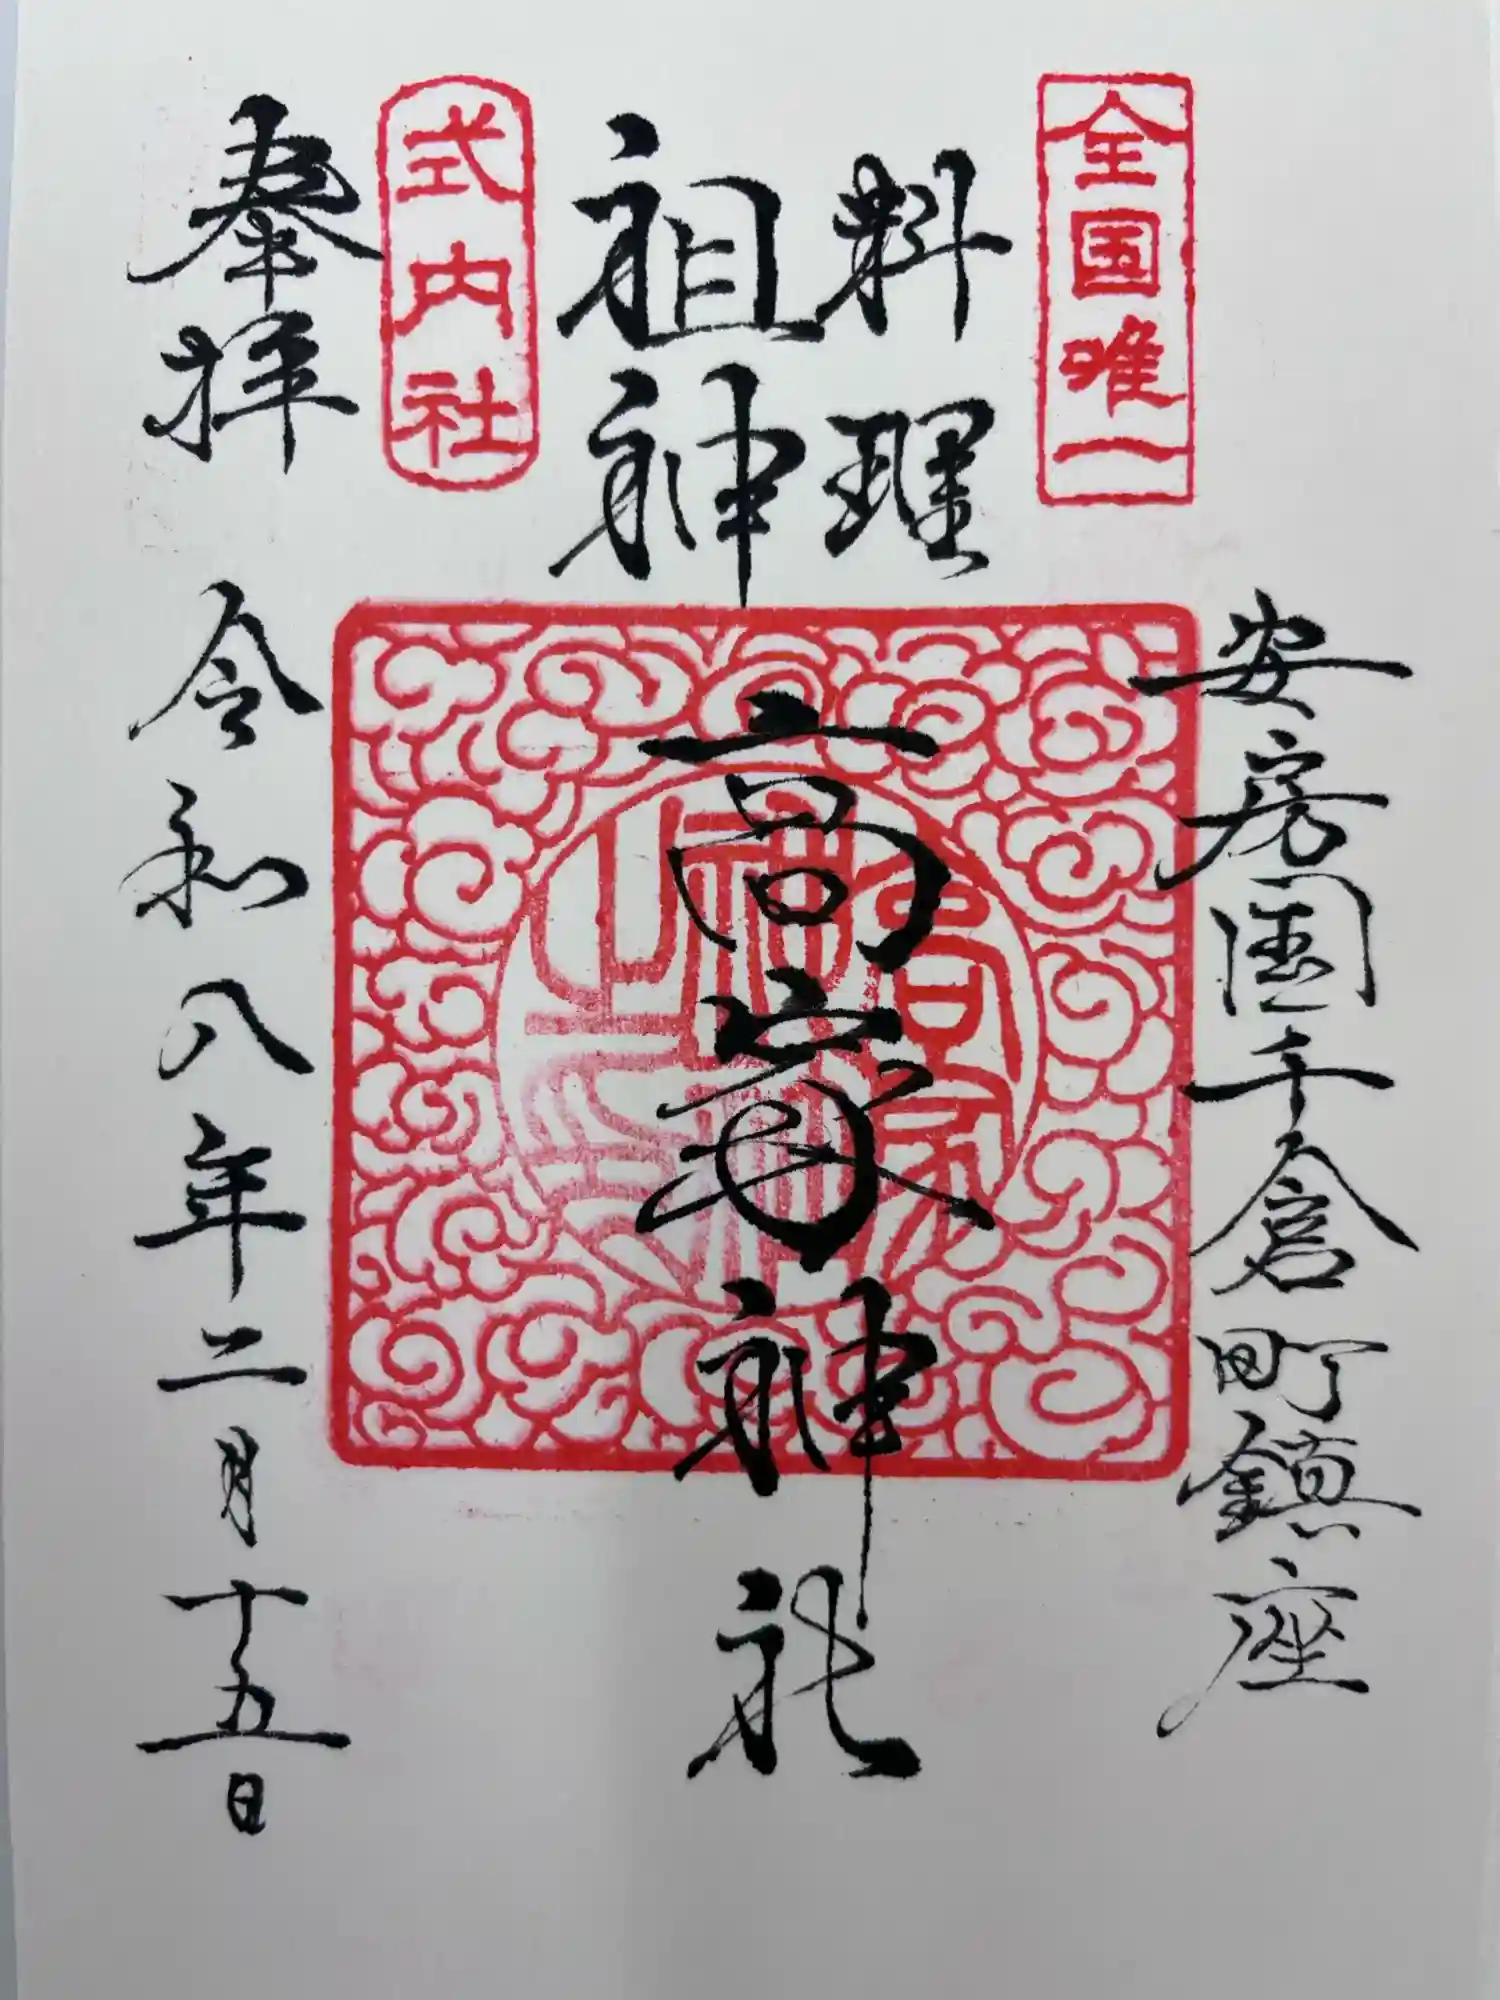 全国唯一
安房国千倉町鎮座
料理
祖神
高家神社
式内社
奉拝
令和八年二月十五日